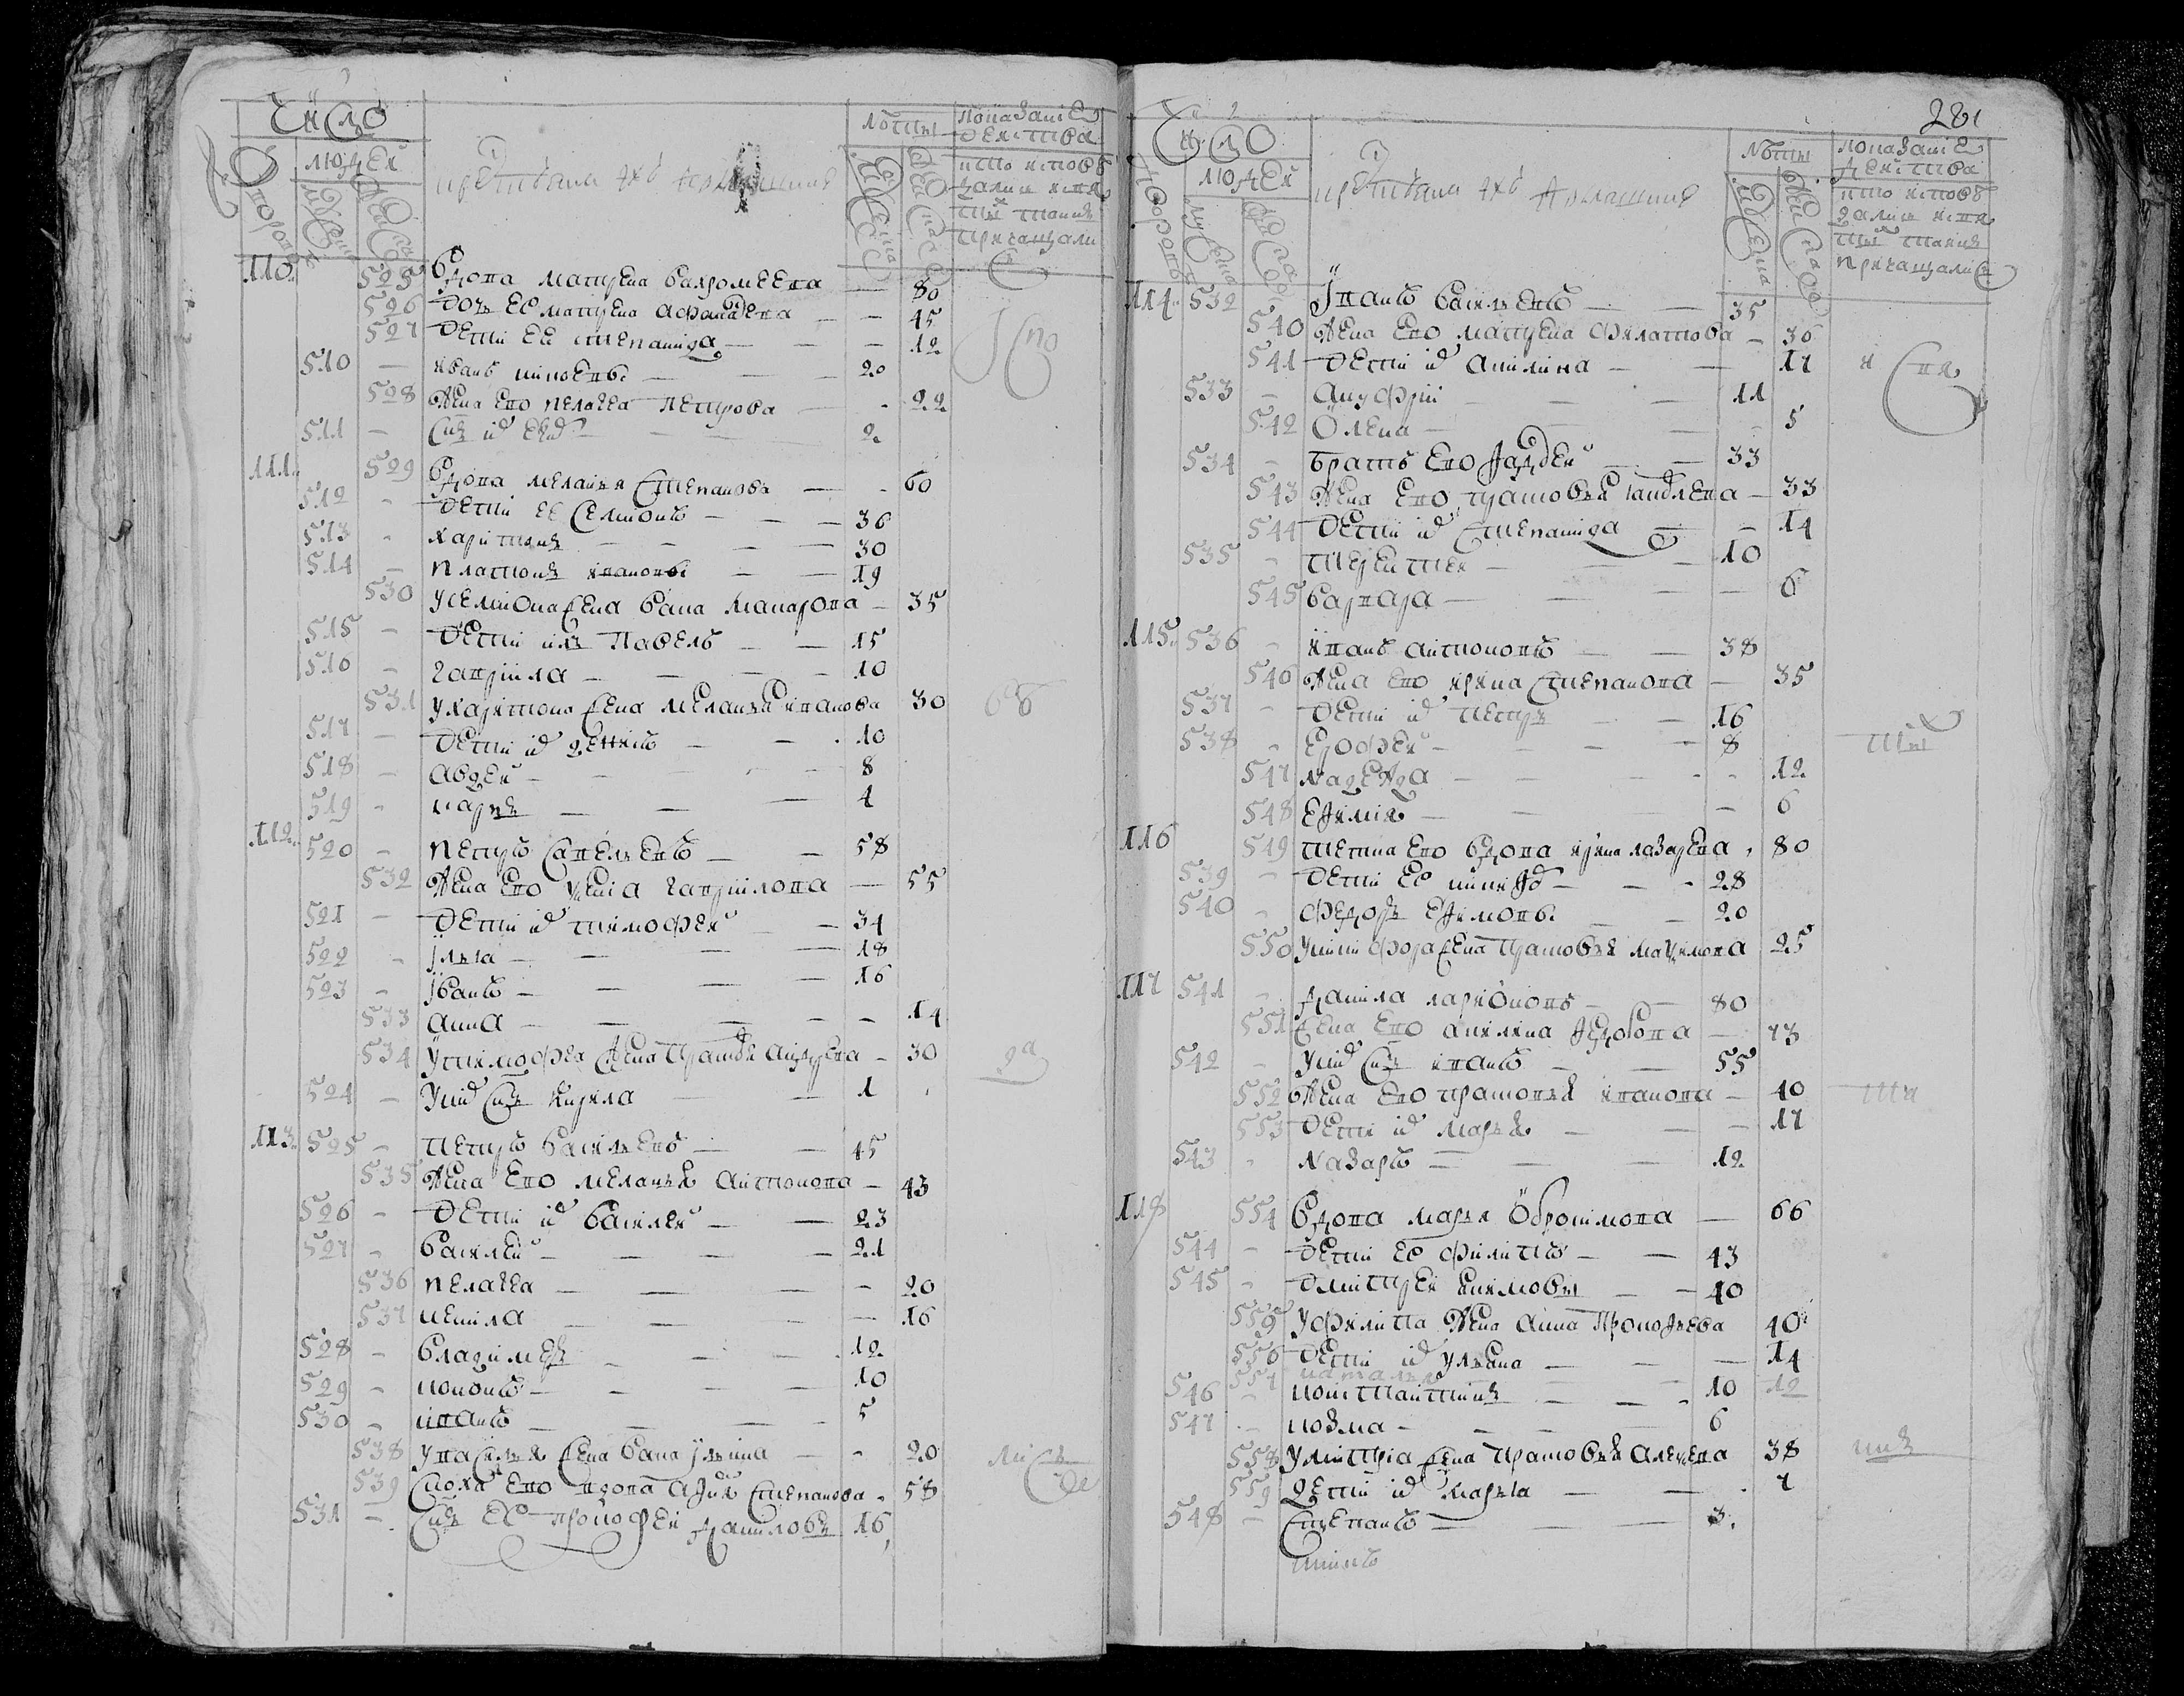 Число
дворовъ
людей
мужеска
женска
крестьяня ихъ домашния
лѣты
мужеска
женска
показание
действа
кто исповѣ
дались и свя
тыхъ таинъ
причащали
110. 525 вдова матрена вахромеева — 80
526 дочь ее матрена афонасева — 45
527 дети ее степанида — 12
510 — иванъ — 20
528 жена ево пелагея петрова — 22
511 — сынъ их — 2
111. 529 вдова меланья степанова — 60
512 — дети ее семионъ — 36
513 — харитонъ — 30
514 — платонъ ивановы — 19
530 у семиона жена вава макарова — 35
515 — дети ихъ павелъ — 15
516 — гаврила — 10
531 у харитона жена меланья иванова 30
517 — дети их денисъ — 10
518 — авдеи — 8
519 — марко — 4
112. 520 — петръ савельевъ — 58
532 жена ево ксения гаврилова — 55
521 — дети их тимофеи — 34
522 — илья — 18
523 — иванъ — 16
533 анна — 14
534 у тимофея жена прасковья андреева — 30
524 — у них сынъ кирила — 1
113. 525 — петръ васильевъ — 45
535 жена ево меланья антонова — 43
526 — дети их василеи — 23
527 — василеи — 21
536 пелагея — 20
537 ненила — 16
528 — владимеръ — 12
529 — кононъ — 10
530 — иванъ — 5
538 у василья жена вава ильина — 20
539 сноха ево вдова афимья степанова 58
531 — сынъ ее прокофеи даниловъ 16
Испо
вѣ
да
лись
281
Число
дворовъ
людей
мужеска
женска
крестьяня ихъ домашния
лѣты
мужеска
женска
показание
действа
кто исповѣ
дались и свя
тыхъ таинъ
причащались
114. 532 иванъ васильевъ — 35
540 жена ево матрена филатова — 36
541 дети их акилина — 17
533 — ануфрии — 11
542 олена — 5
534 — братъ ево фаддеи — 33
543 жена ево прасковья яковлева — 33
544 дети их степанида — 14
535 — терентеи — 10
545 варвара — 6
115. 536 — иванъ антоновъ — 38
546 жена ево ирина степанова — 35
537 — дети их петръ — 16
538 — ерофеи — 8
547 надежда — 12
548 ефимия — 6
116 549 тетка ево вдова ирина лазарева 80
539 — дети ее никифоръ — 28
540 — федоръ ефимовы — 20
550 у никифора жена прасковья максимова 25
117 541 — данила ларионовъ — 80
551 жена ево акилина федорова — 73
542 — у них сынъ иванъ — 55
552 жена ево прасковья иванова — 40
553 дети их марья — 17
543 — назаръ — 12
118 554 вдова марья обросимова — 66
544 — дети ее филипъ — 43
545 — дмитреи екимовы — 40
555 у филипа жена анна прокофьева 40
556 дети их ульяна — 14
557 наталья 12
546 — констаитинъ — 10
547 — козма — 6
558 у митрия жена прасковья алексеева 38
559 дети их марья — 7
548 — степанъ — 3
и свя
ты
ин